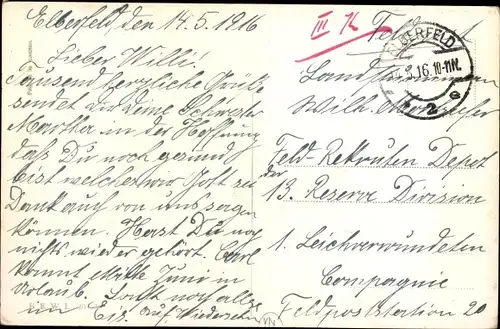 Elberfeld, den 14.5.1916
Lieber Willi!
Tausend herzliche Grüße
sendet Dir deine Schwester
Martha in der Hoffnung
daß Du noch gesund
bist welches wir Gott sei
Dank auch von uns sagen
können. Hast Du noch
nichts wieder gehört. Carl
kommt Mitte Juni in
Urlaub. Sonst noch alles
im Auf Wiedersehn
III K
ELBERFELD
5.16.10-11N.
2 e
Landsturmmann
Wilh.
Feld-Rekruten Depot
der
13. Reserve Division
1. Leichverwundeten
Compagnie
Feldpoststation 20